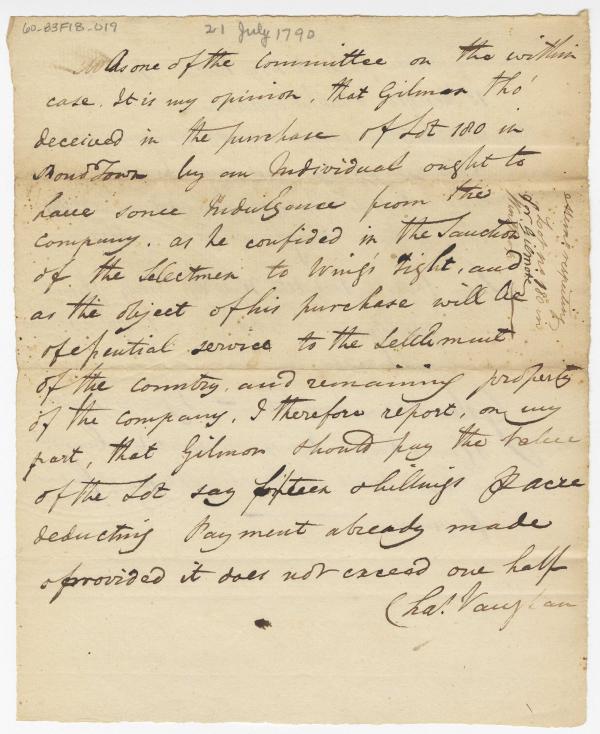 60-83F1B-019
21 July 1790
As one of the Committee on the within
case. It is my opinion, that Gilman tho'
deceived in the purchase of Lot 180 in
Pond Town by an Individual ought to
have some Indulgence from the
Company. as he confided in the Sanction
of the Selectmen to Wing's right, and
as the object of his purchase will be
of essential service to the Settlement
of the country, and remaining property
of the company, I therefore report, on my
part, that Gilmon should pay the value
of the Lot say fifteen shillings P acre
deducting Payment already made
provided it does not exceed one half
Chas. Vaughan
respecting
Lot No 180 in